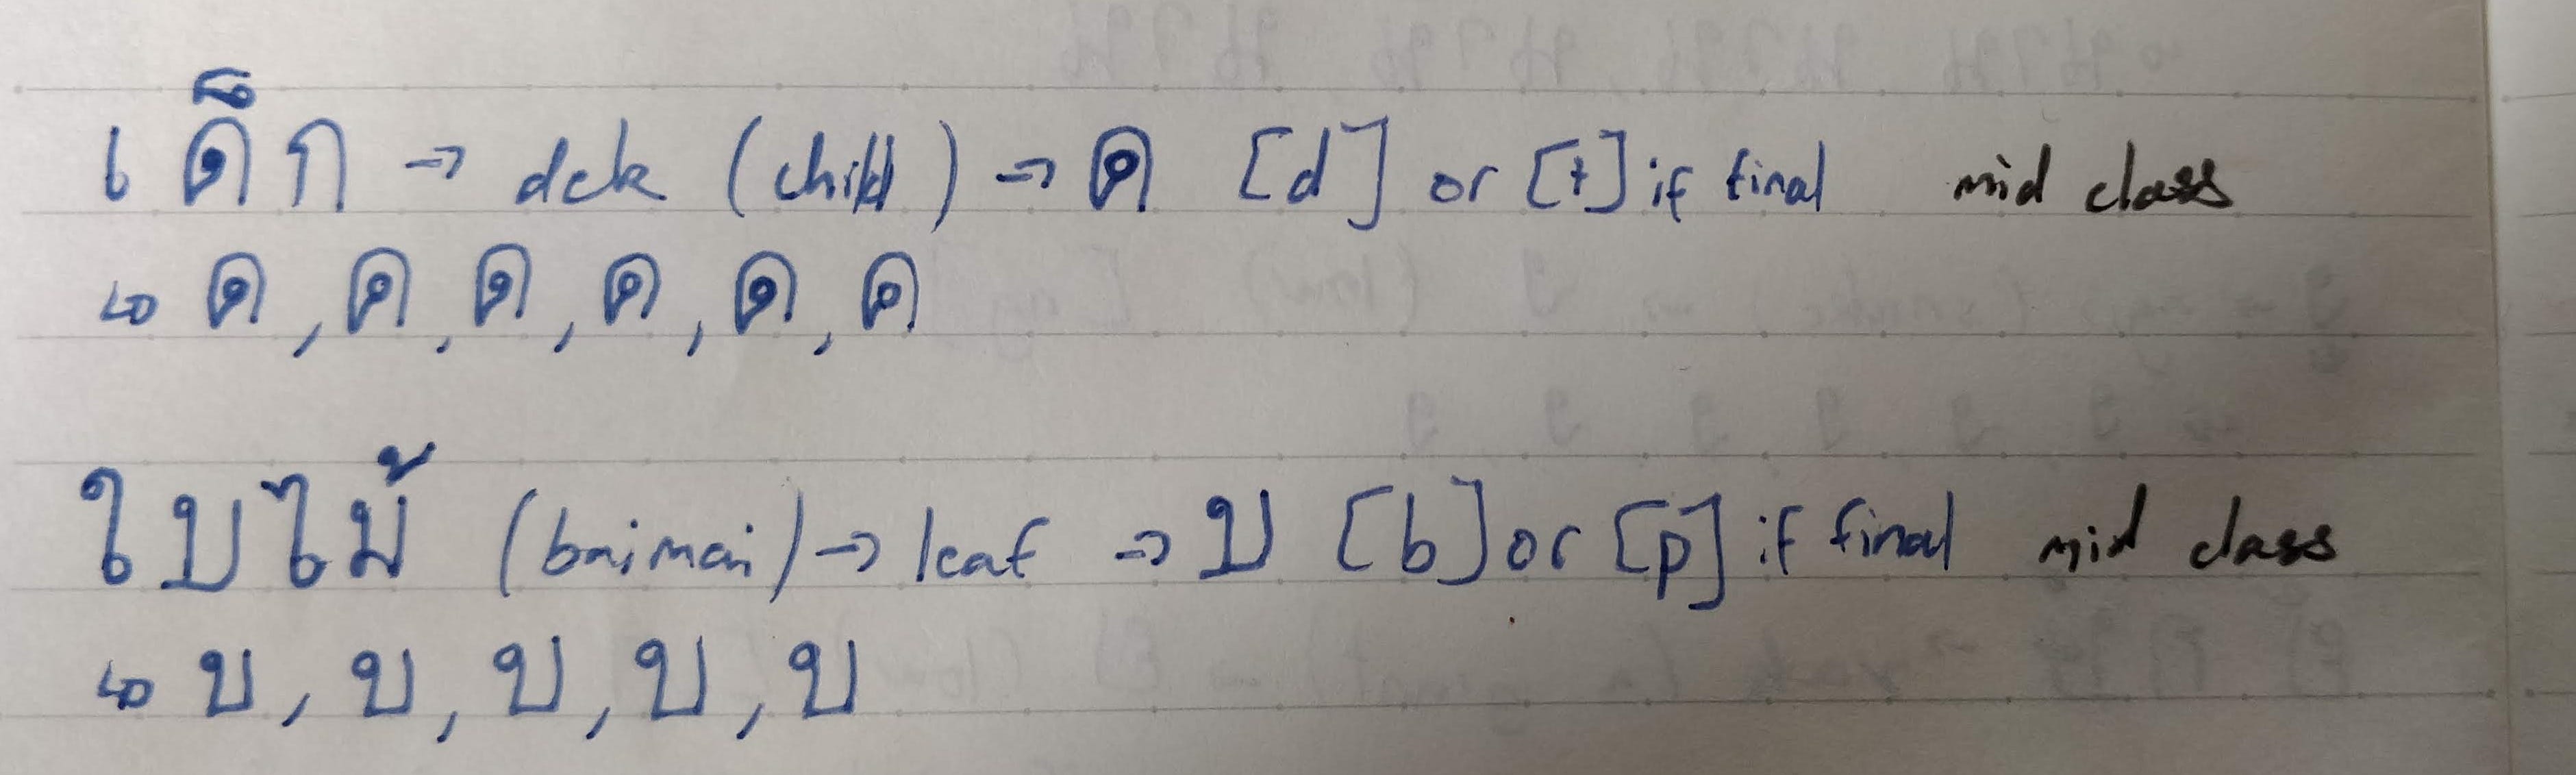 เด็ก → dek (child) → ด [d] or [t] if final mid class
↳ ด, ด, ด, ด, ด, ด
ใบไม้ (baimai) → leaf → บ [b] or [p] if final mid class
↳ บ, บ, บ, บ, บ